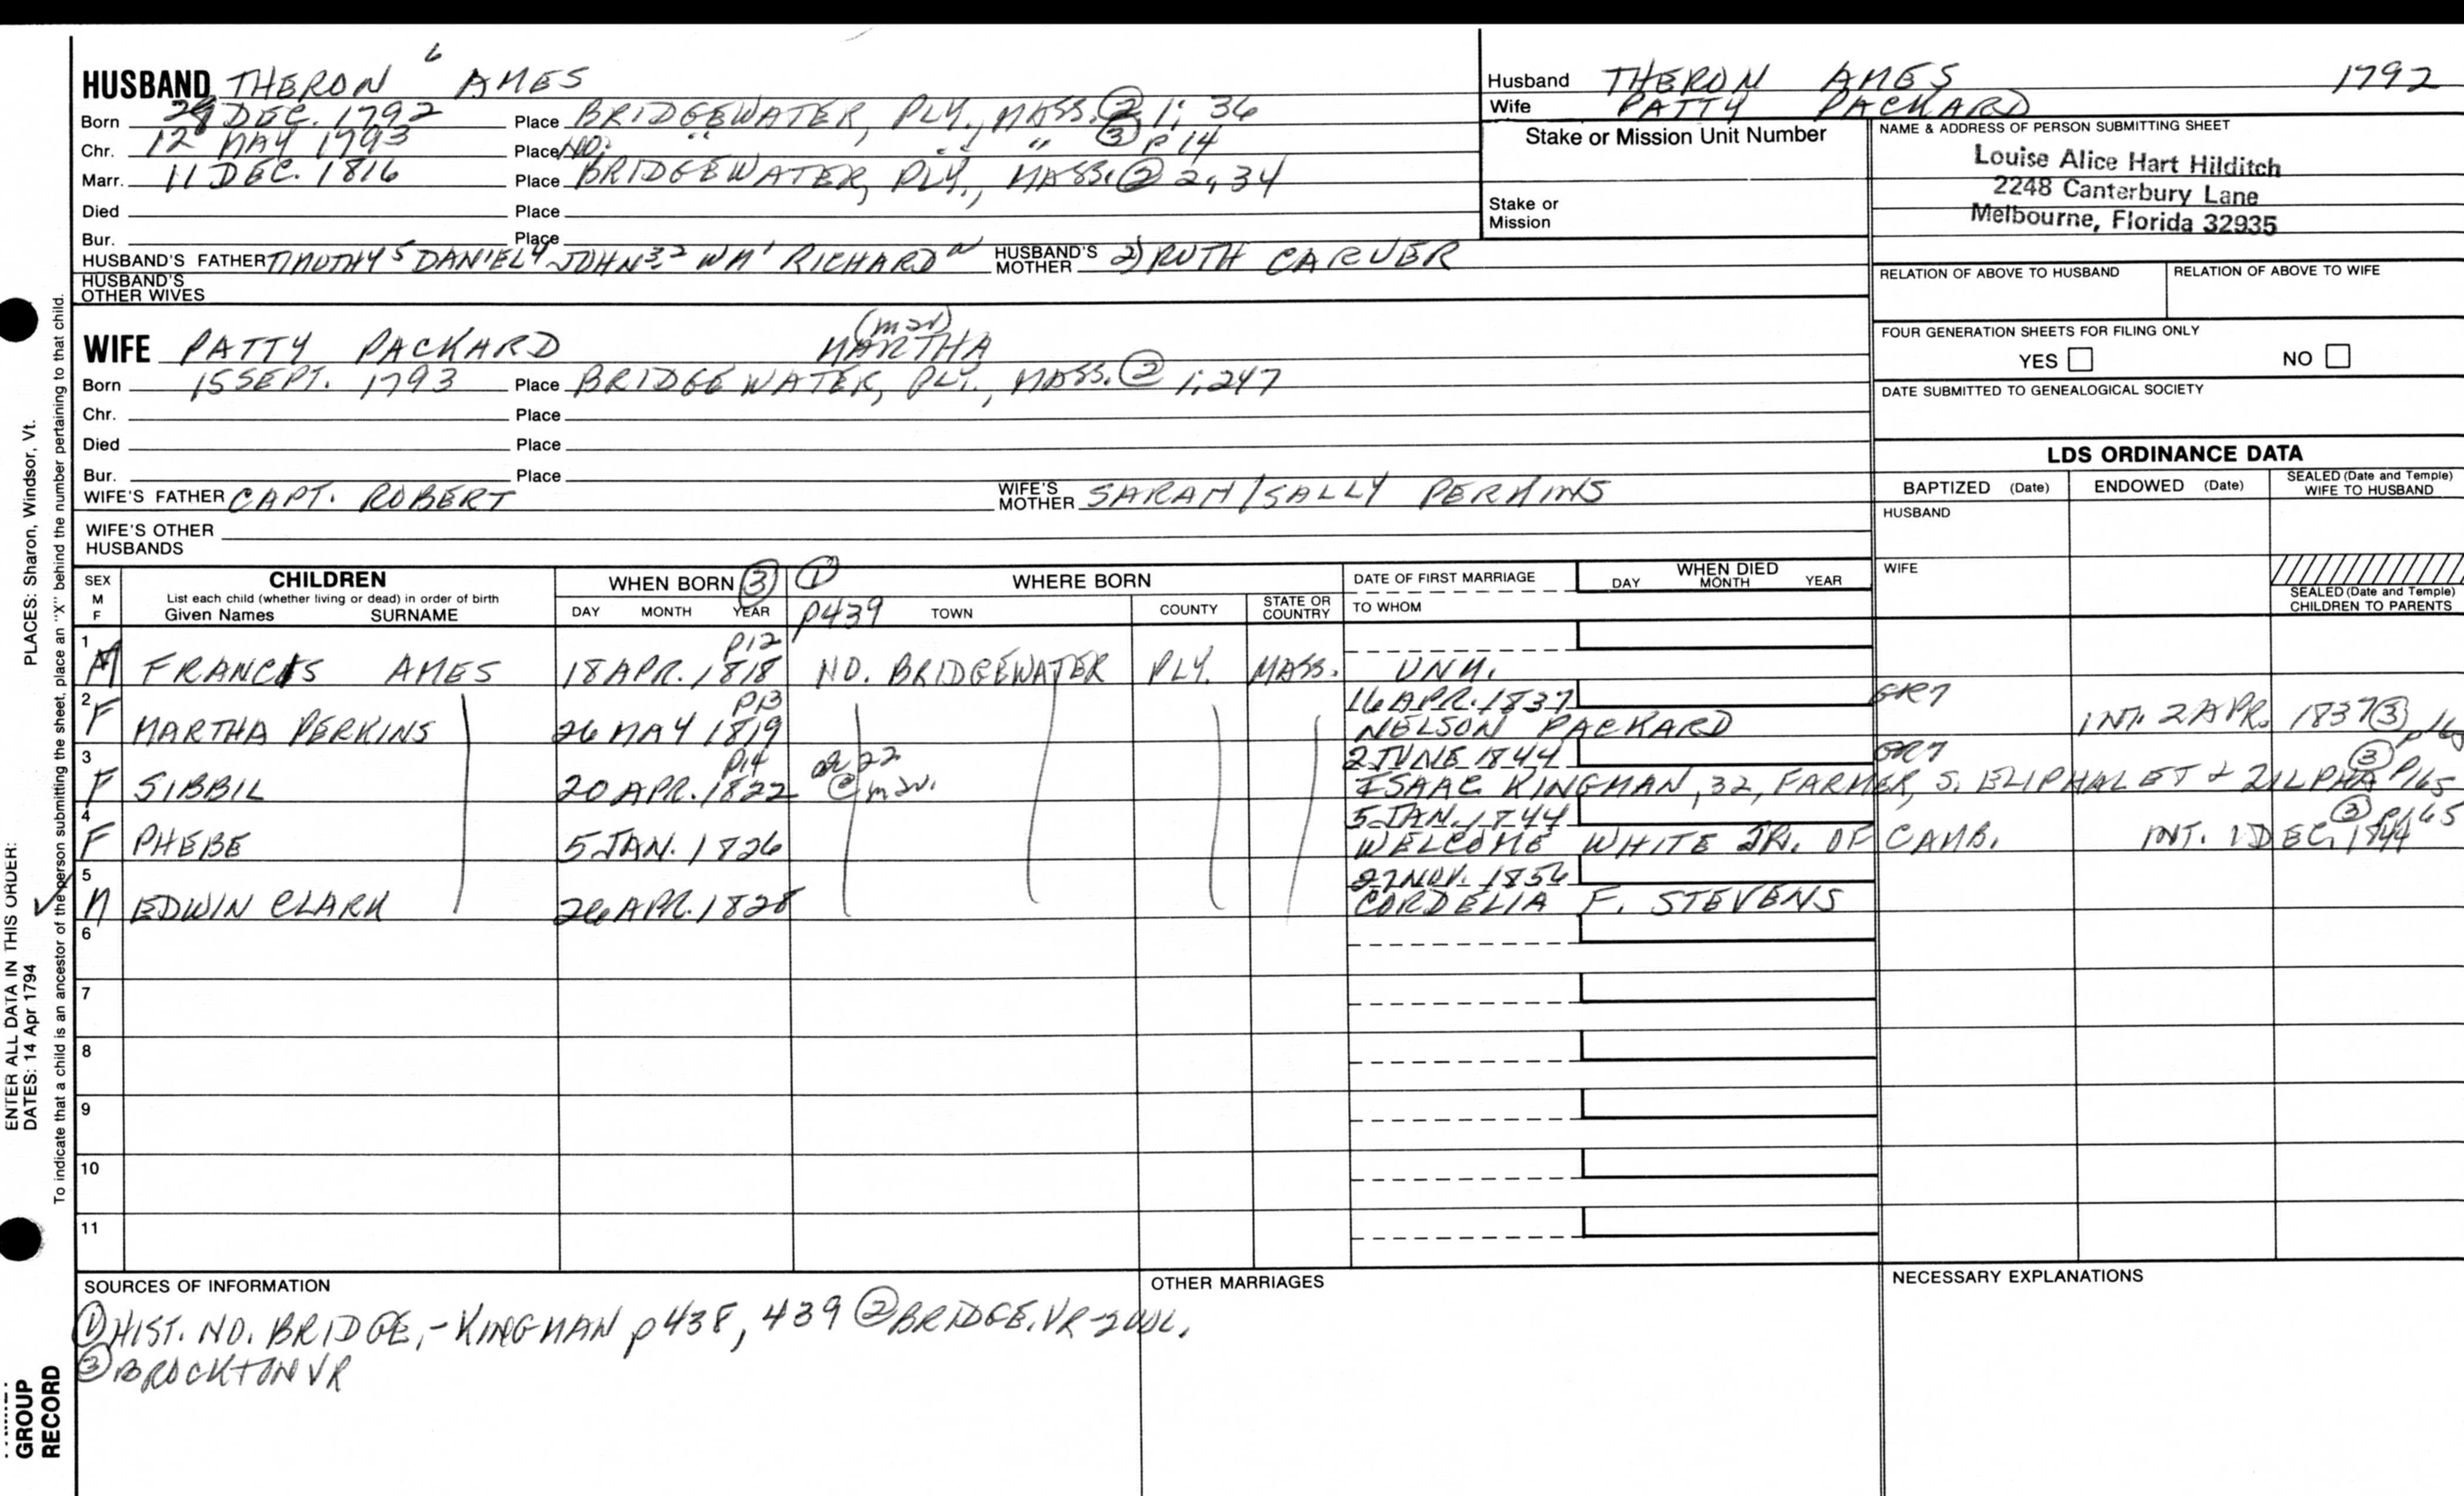 HUSBAND THERON 6 AMES
Born DEC. 1792 Place BRIDGEWATER, PLY., MASS. ② 1; 36
Chr. 12 MAY 1793 Place NO. " " " ③ p14
Marr. 11 DEC. 1816 Place BRIDGEWATER, PLY., MASS. ② 2, 34
Died Place
Bur. Place
HUSBAND'S FATHER TIMOTHY 5 DANIEL 4 JOHN 3-2 WM 1 RICHARD HUSBAND'S MOTHER 2) RUTH CARVER
HUSBAND'S OTHER WIVES
Husband THERON AMES 1792
Wife PATTY PACKARD
Stake or Mission Unit Number
Stake or Mission
NAME & ADDRESS OF PERSON SUBMITTING SHEET
Louise Alice Hart Hilditch
2248 Canterbury Lane
Melbourne, Florida 32935
RELATION OF ABOVE TO HUSBAND RELATION OF ABOVE TO WIFE
FOUR GENERATION SHEETS FOR FILING ONLY
YES NO
DATE SUBMITTED TO GENEALOGICAL SOCIETY
(mar)
WIFE PATTY PACKARD MARTHA
Born 15 SEPT. 1793 Place BRIDGEWATER, PLY., MASS. ② 1; 247
Chr. Place
Died Place
Bur. Place
WIFE'S FATHER CAPT. ROBERT WIFE'S MOTHER SARAH/SALLY PERKINS
WIFE'S OTHER HUSBANDS
LDS ORDINANCE DATA
BAPTIZED (Date) ENDOWED (Date) SEALED (Date and Temple) WIFE TO HUSBAND
HUSBAND
WIFE
SEALED (Date and Temple) CHILDREN TO PARENTS
SEX M F
CHILDREN
List each child (whether living or dead) in order of birth
Given Names SURNAME
WHEN BORN ③
DAY MONTH YEAR
① p439
WHERE BORN
TOWN COUNTY STATE OR COUNTRY
DATE OF FIRST MARRIAGE
TO WHOM
WHEN DIED
DAY MONTH YEAR
p12
1 M FRANCIS AMES 18 APR. 1818 NO. BRIDGEWATER PLY. MASS. UNM.
p13 16 APR. 1837 GR7
2 F MARTHA PERKINS 26 MAY 1819 NELSON PACKARD INT. 2 APR. 1837 ③
p14 22 2 JUNE 1844 GR7 ③ p165
3 F SIBBIL 20 APR. 1822 @ mar. ISAAC KINGMAN, 32, FARMER, S. ELIPHALET & ZILPHA
5 JAN. 1844 ③ p165
4 F PHEBE 5 JAN. 1826 WELCOME WHITE JR. OF CAMB. INT. 1 DEC. 1844
27 NOV. 1856
5 M EDWIN CLARK 26 APR. 1828 CORDELIA F. STEVENS
6
7
8
9
10
11
SOURCES OF INFORMATION
① HIST. NO. BRIDGE, - KINGMAN p438, 439 ② BRIDGE. VR - 2 VOL.
③ BROCKTON VR
OTHER MARRIAGES
NECESSARY EXPLANATIONS
ENTER ALL DATA IN THIS ORDER:
DATES: 14 Apr 1794 PLACES: Sharon, Windsor, Vt.
To indicate that a child is an ancestor of the person submitting the sheet, place an "X" behind the number pertaining to that child.
GROUP
RECORD